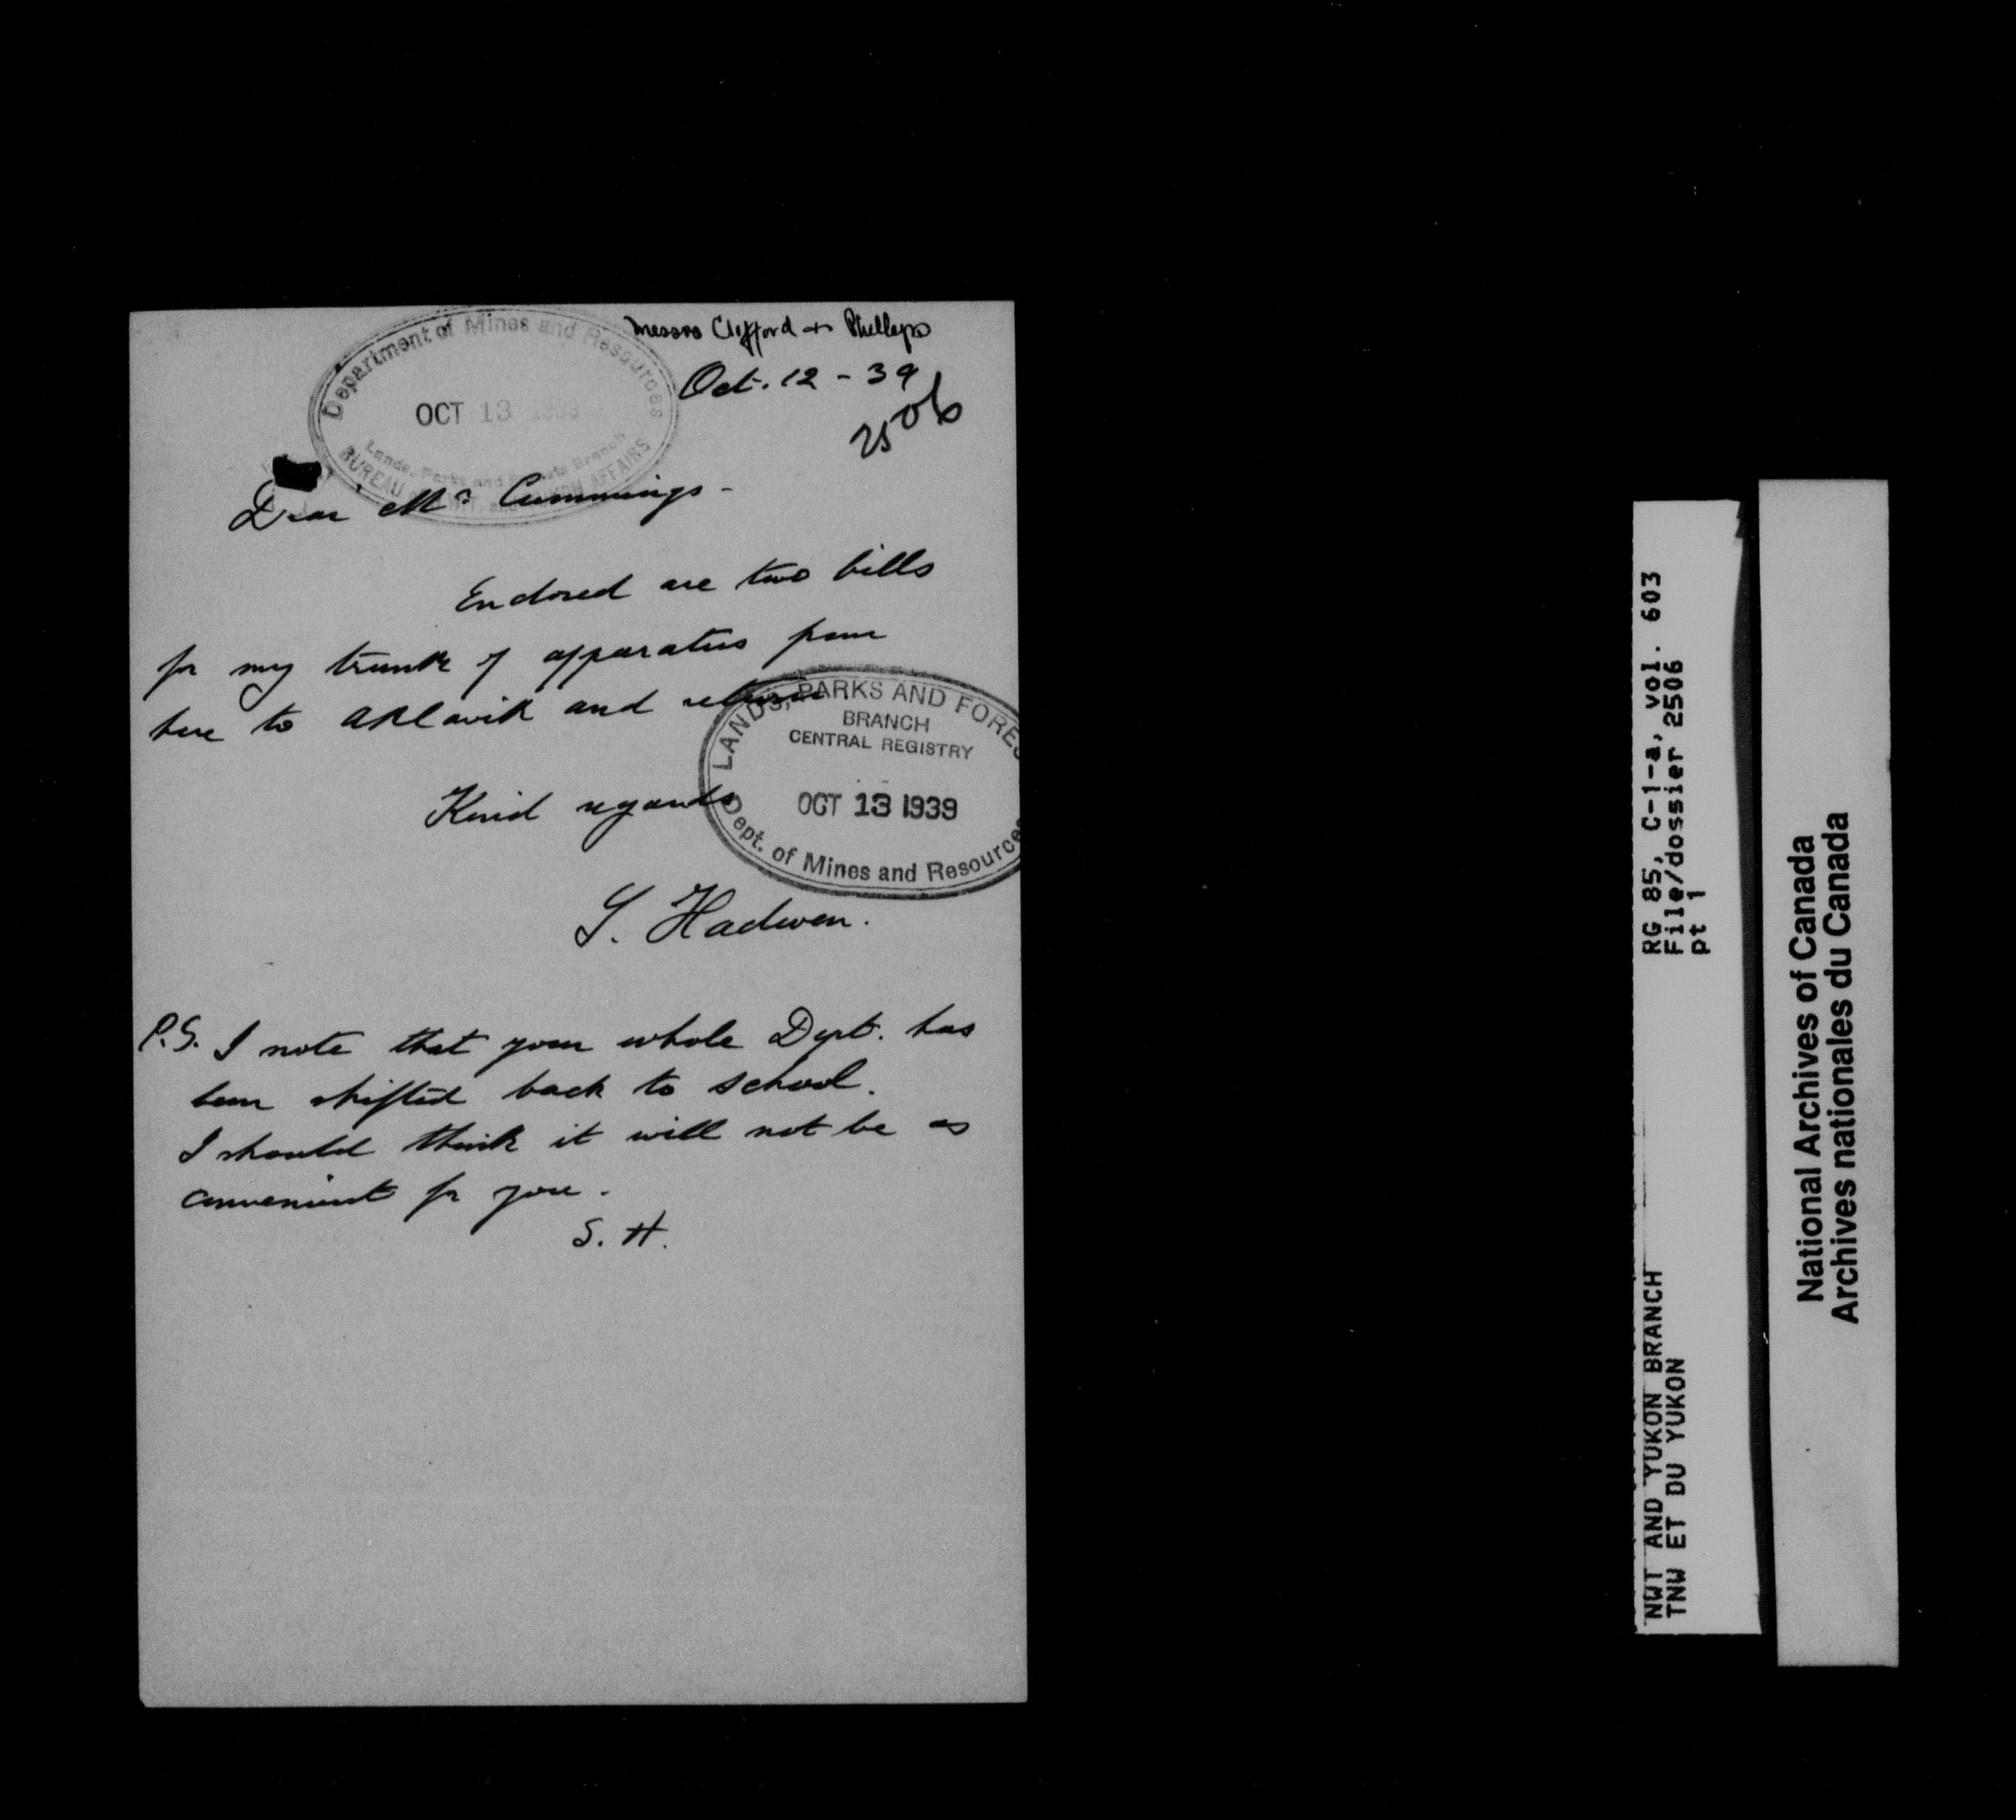 Messrs Clifford + Phillips
Department of Mines and Resources
OCT 13 1939
Lands, Parks and Forests Branch
BUREAU of N.W.T. and YUKON AFFAIRS
Oct. 12 - 39
2506
Dear Mr Cummings -
Enclosed are two bills
for my trunk of apparatus from
here to Aklavik and return
LANDS, PARKS AND FORES
BRANCH
CENTRAL REGISTRY
OCT 13 1939
Dept. of Mines and Resources
Kind regards
S. Hadwen.
P.S. I note that your whole Dept. has
been shifted back to school.
I should think it will not be as
convenient for you.
S. H.
RG 85, C-1-a, vol. 603
File/dossier 2506
pt 1
NWT AND YUKON BRANCH
TNW ET DU YUKON
National Archives of Canada
Archives nationales du Canada